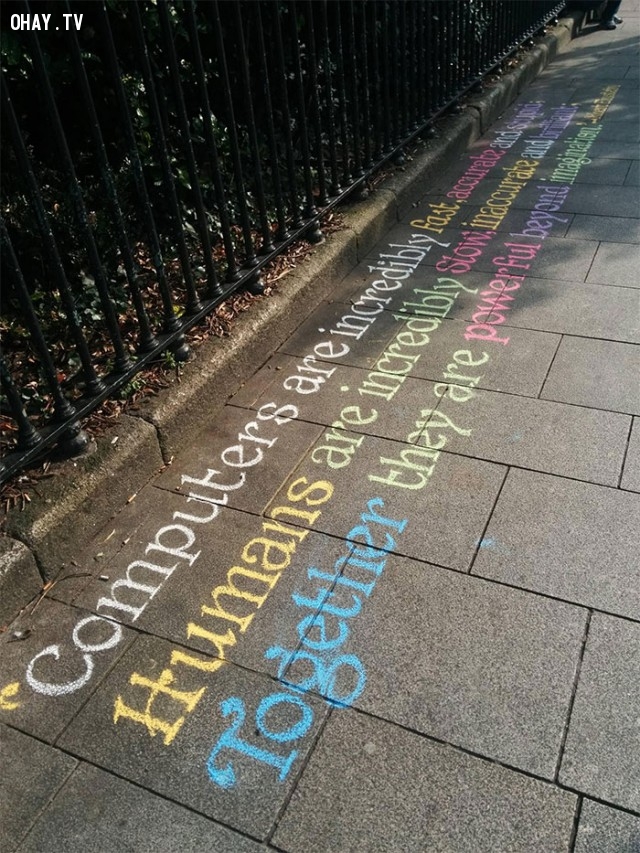 OHAY.TV
"Computers are incredibly fast, accurate and stupid.
Humans are incredibly slow, inaccurate and brilliant.
Together they are powerful beyond imagination.